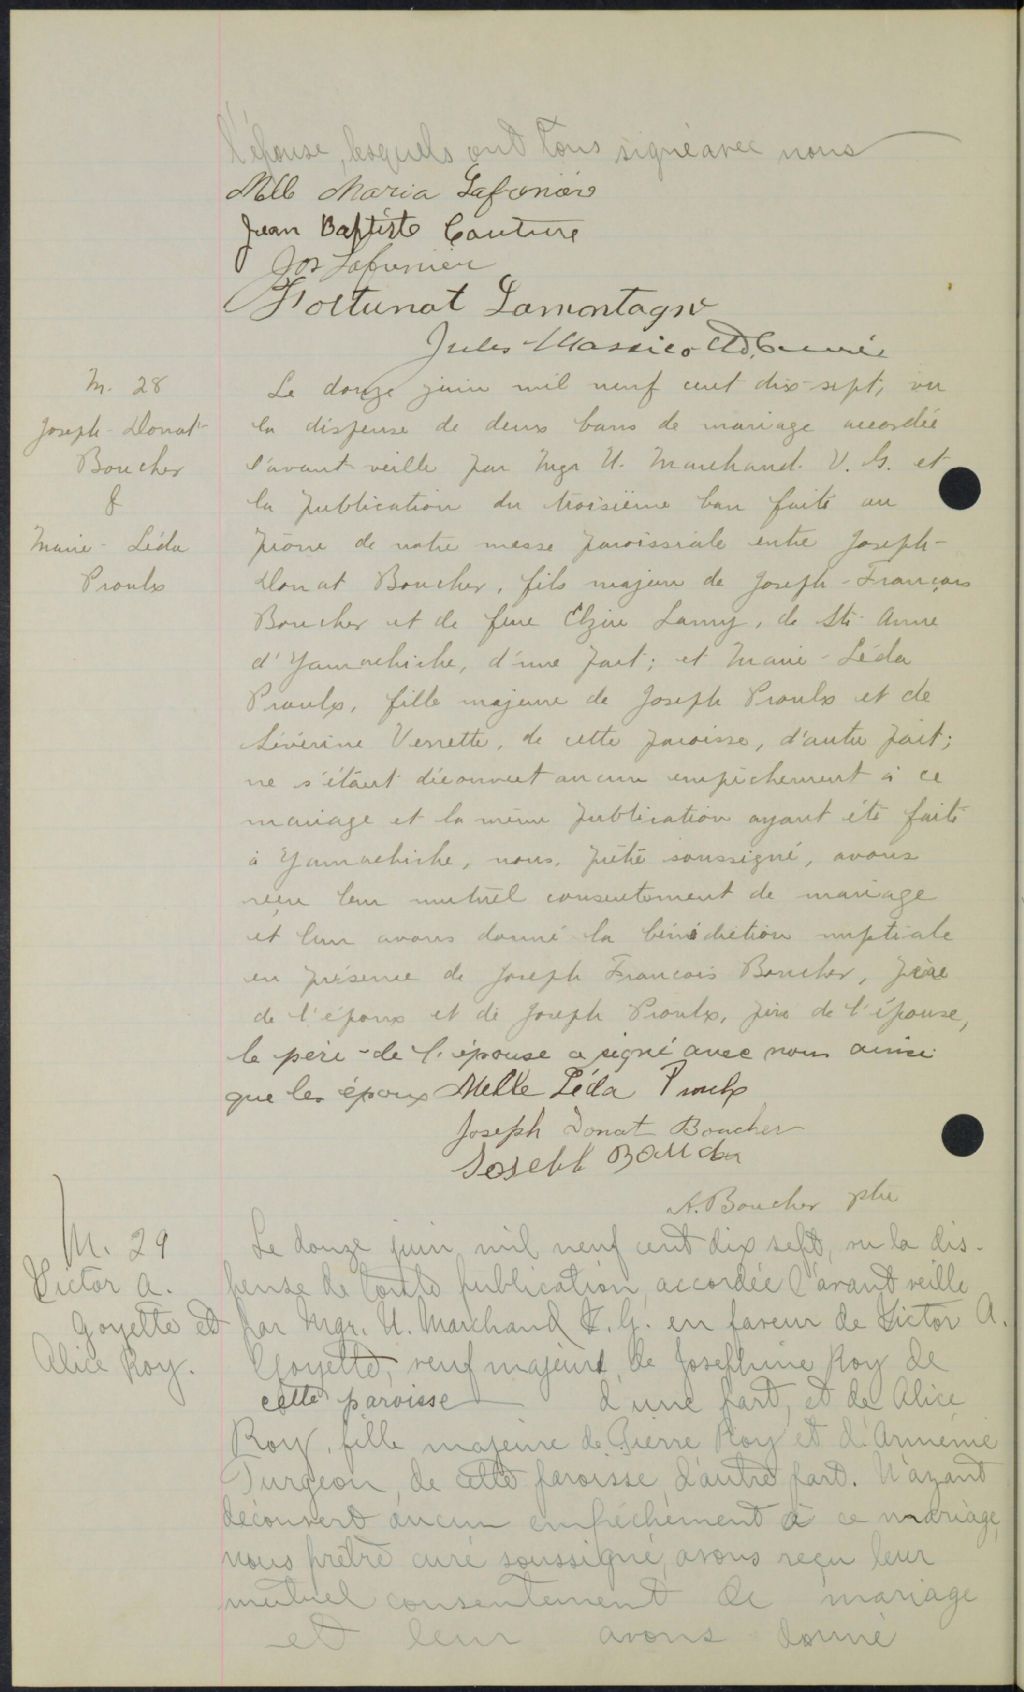 l'épouse, lesquels ont tous signé avec nous
Mlle Maria Lafrenière
Jean Baptiste Couture
Jos Lafrenière
Fortunat Lamontagne
Jules Massicotte, Curé
M. 28
Joseph-Donat
Boucher
&
Marie-Léda
Proulx
Le douze juin mil neuf cent dix-sept, vu
la dispense de deux bans de mariage accordée
l'avant veille par Mgr U. Marchand. V. G. et
la publication du troisième ban faite au
prône de notre messe paroissiale entre Joseph-
Donat Boucher, fils majeur de Joseph-François
Boucher et de feue Elzire Lamy, de Ste Anne
d'Yamachiche, d'une part; et Marie-Léda
Proulx, fille majeure de Joseph Proulx et de
Séverine Verrette, de cette paroisse, d'autre part;
ne s'étant découvert aucun empêchement à ce
mariage et la même publication ayant été faite
à Yamachiche, nous, prêtre soussigné, avons
reçu leur mutuel consentement de mariage
et leur avons donné la bénédiction nuptiale
en présence de Joseph François Boucher, père
de l'époux et de Joseph Proulx, père de l'épouse,
le père de l'épouse a signé avec nous ainsi
que les époux Melle Léda Proulx
Joseph Donat Boucher
Joseph
A. Boucher ptre
M. 29
Victor A.
Goyette et
Alice Roy.
Le douze juin mil neuf cent dix sept, vu la dis-
pense de toute publication, accordée l'avant veille
par Mgr. U. Marchand V. G. en faveur de Victor A.
Goyette, veuf majeur, de Josephine Roy de
cette paroisse d'une part, et de Alice
Roy, fille majeure de Pierre Roy et d'Arménie
Turgeon, de cette paroisse d'autre part. N'ayant
découvert aucun empêchement à ce mariage,
nous prêtre curé soussigné, avons reçu leur
mutuel consentement de mariage
et leur avons donné